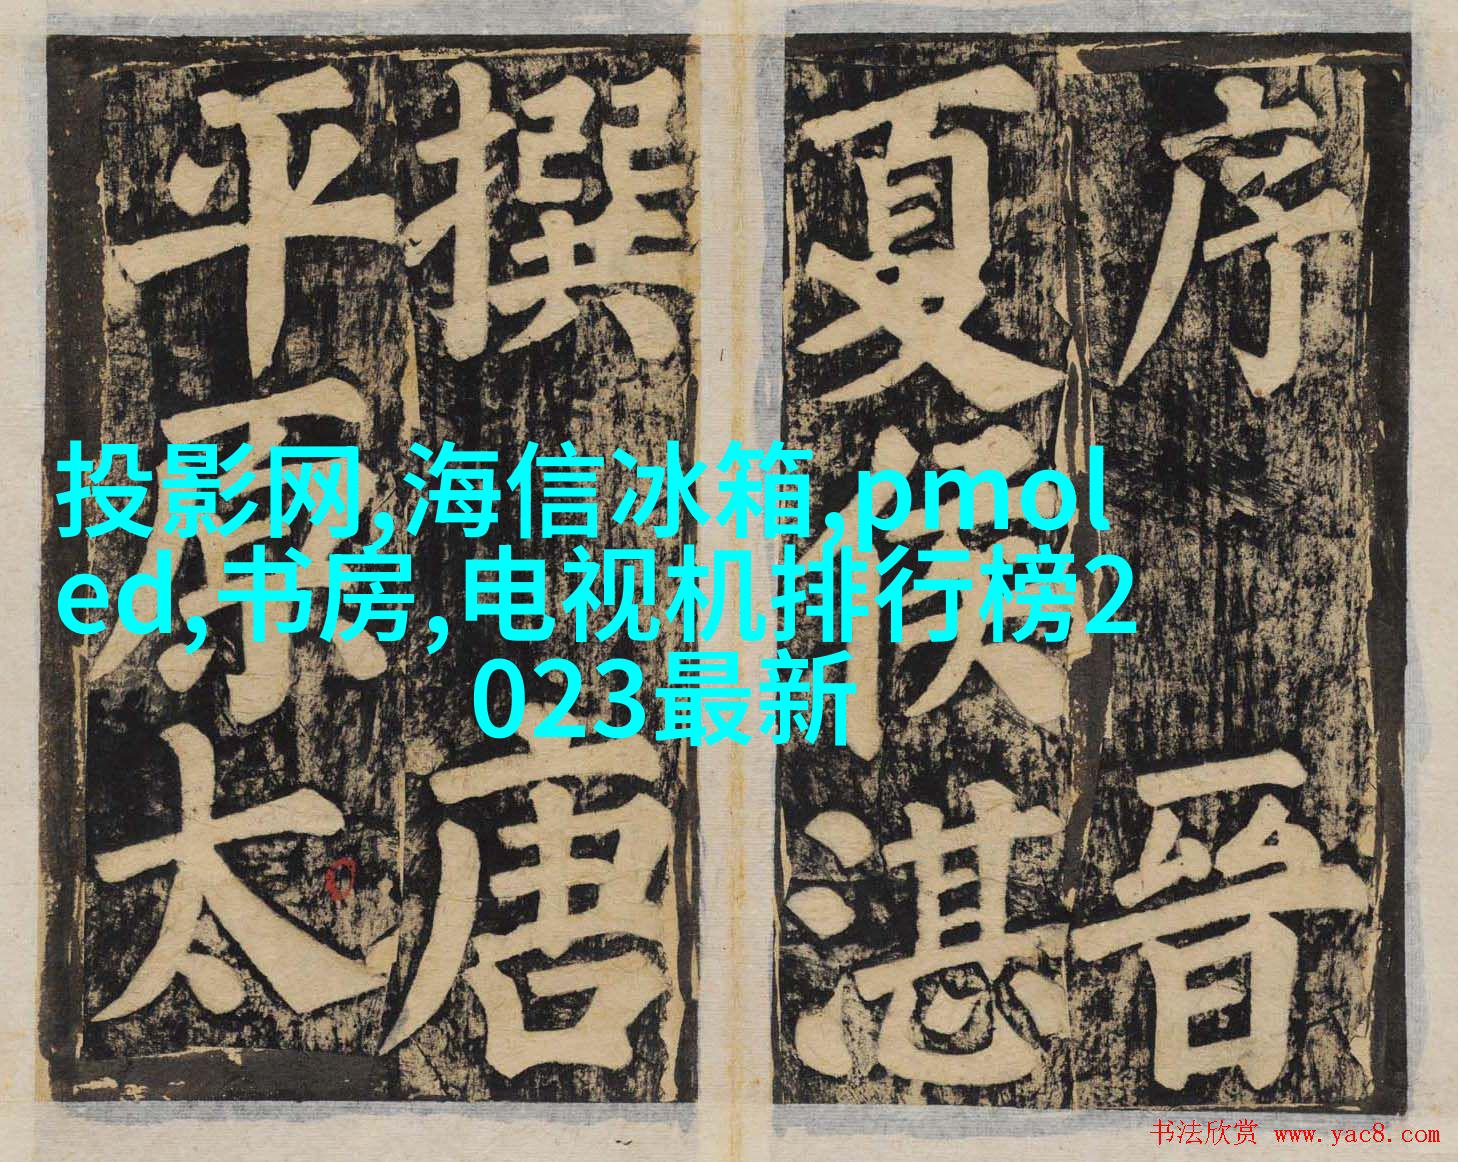 序晉
夏侯湛
撰唐
平原太
投影网,海信冰箱,pmol
ed,书房,电视机排行榜2
023最新
书法欣赏 www.yac8.com